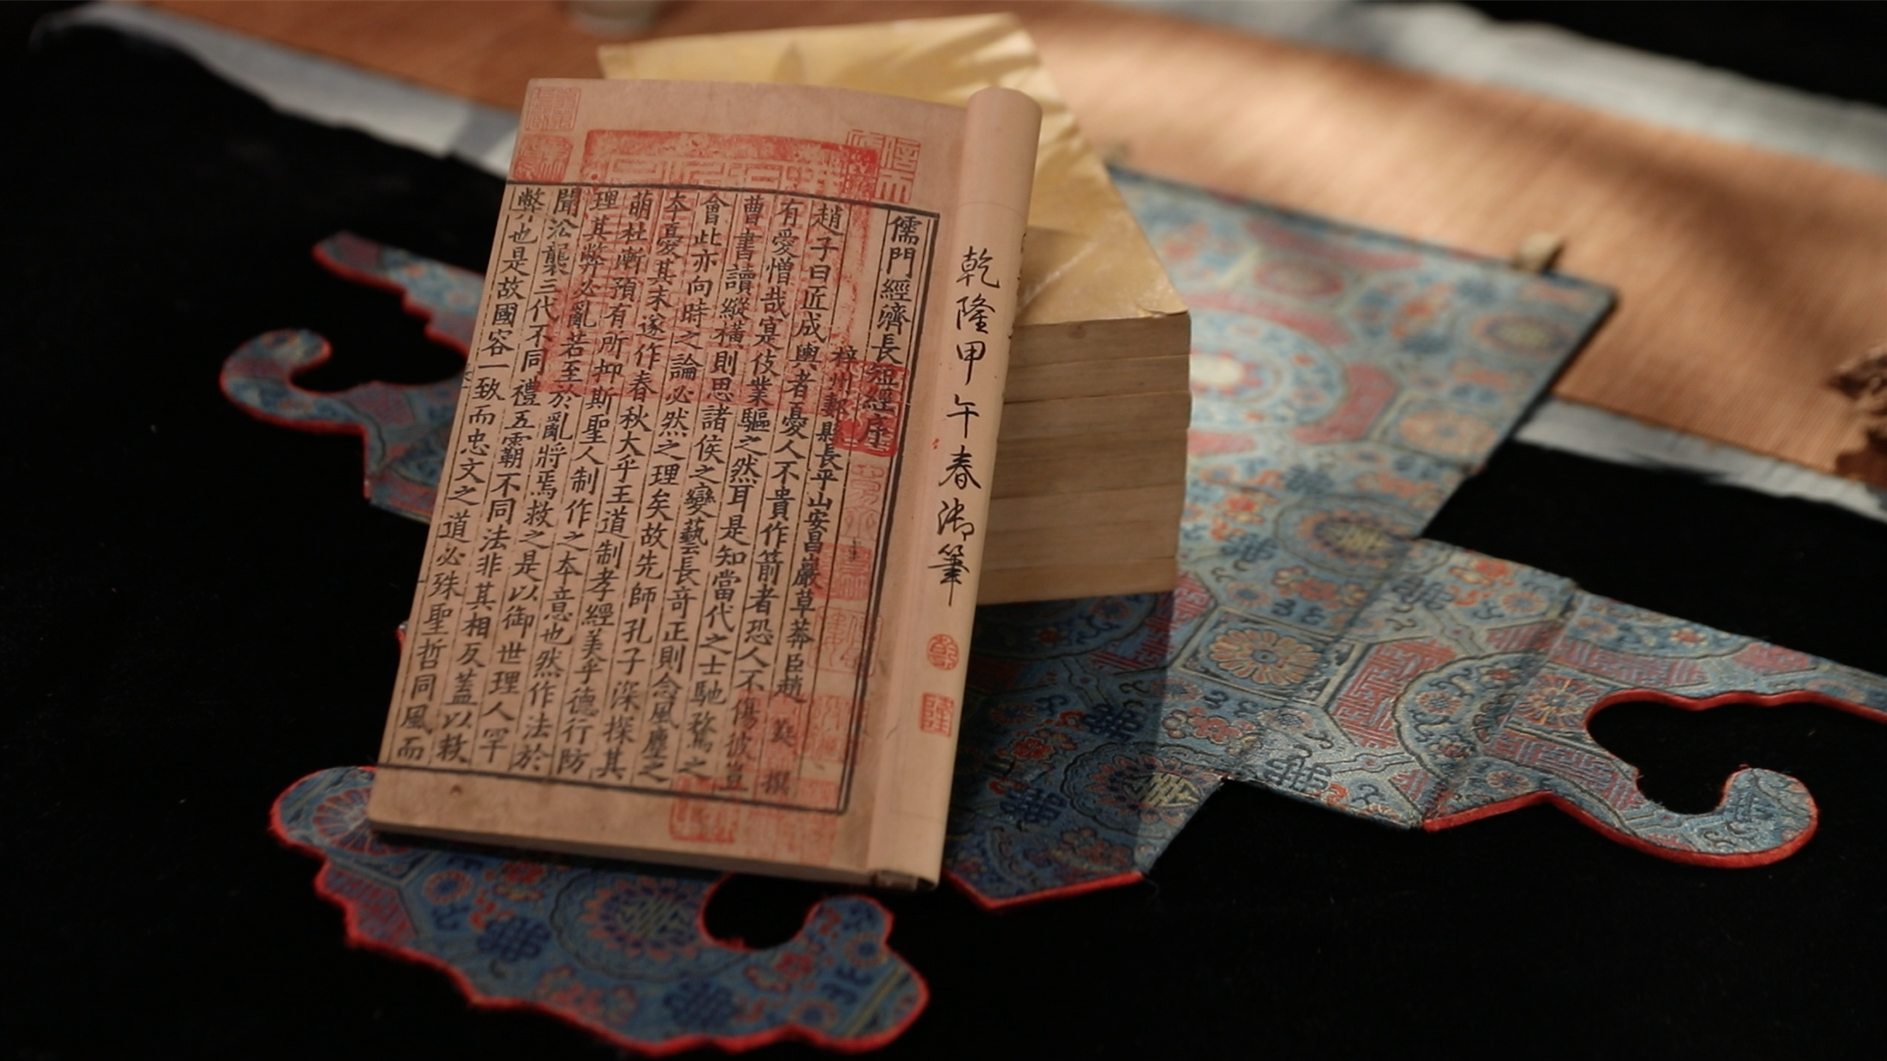 乾隆甲午春御筆
儒門經濟長短經序
梓州郪縣長平山安昌巖草莽臣趙 蕤 撰
趙子曰匠成輿者憂人不貴作箭者恐人不傷彼豈
有愛憎哉寔伎業驅之然耳是知當代之士馳騖之
曹書讀縱橫則思諸侯之變藝長奇正則念風塵之
會此亦向時之論必然之理矣故先師孔子深探其
本憂其末遂作春秋大乎王道制孝經美乎德行防
萌杜漸預有所抑斯聖人制作之本意也然作法於
理其弊必亂若至於亂將焉救之是以御世理人罕
聞沿襲三代不同禮五霸不同法非其相反蓋以救
弊也是故國容一致而忠文之道必殊聖哲同風而